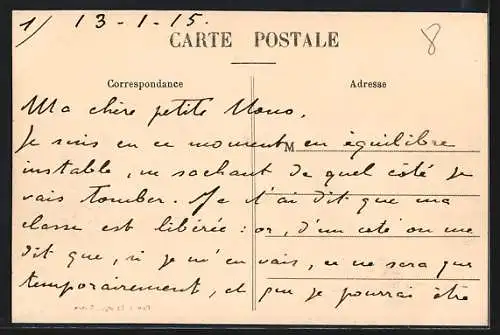 1/ 13-1-15.
8
CARTE POSTALE
Correspondance
Adresse
Ma chère petite Nono,
Je suis en ce moment en équilibre
M
instable, ne sachant de quel côté je
vais tomber. Je t'ai dit que ma
classe est libérée : or, d'un coté on me
dit que, si je m'en vais, ce ne sera que
temporairement, et que je pourrai être